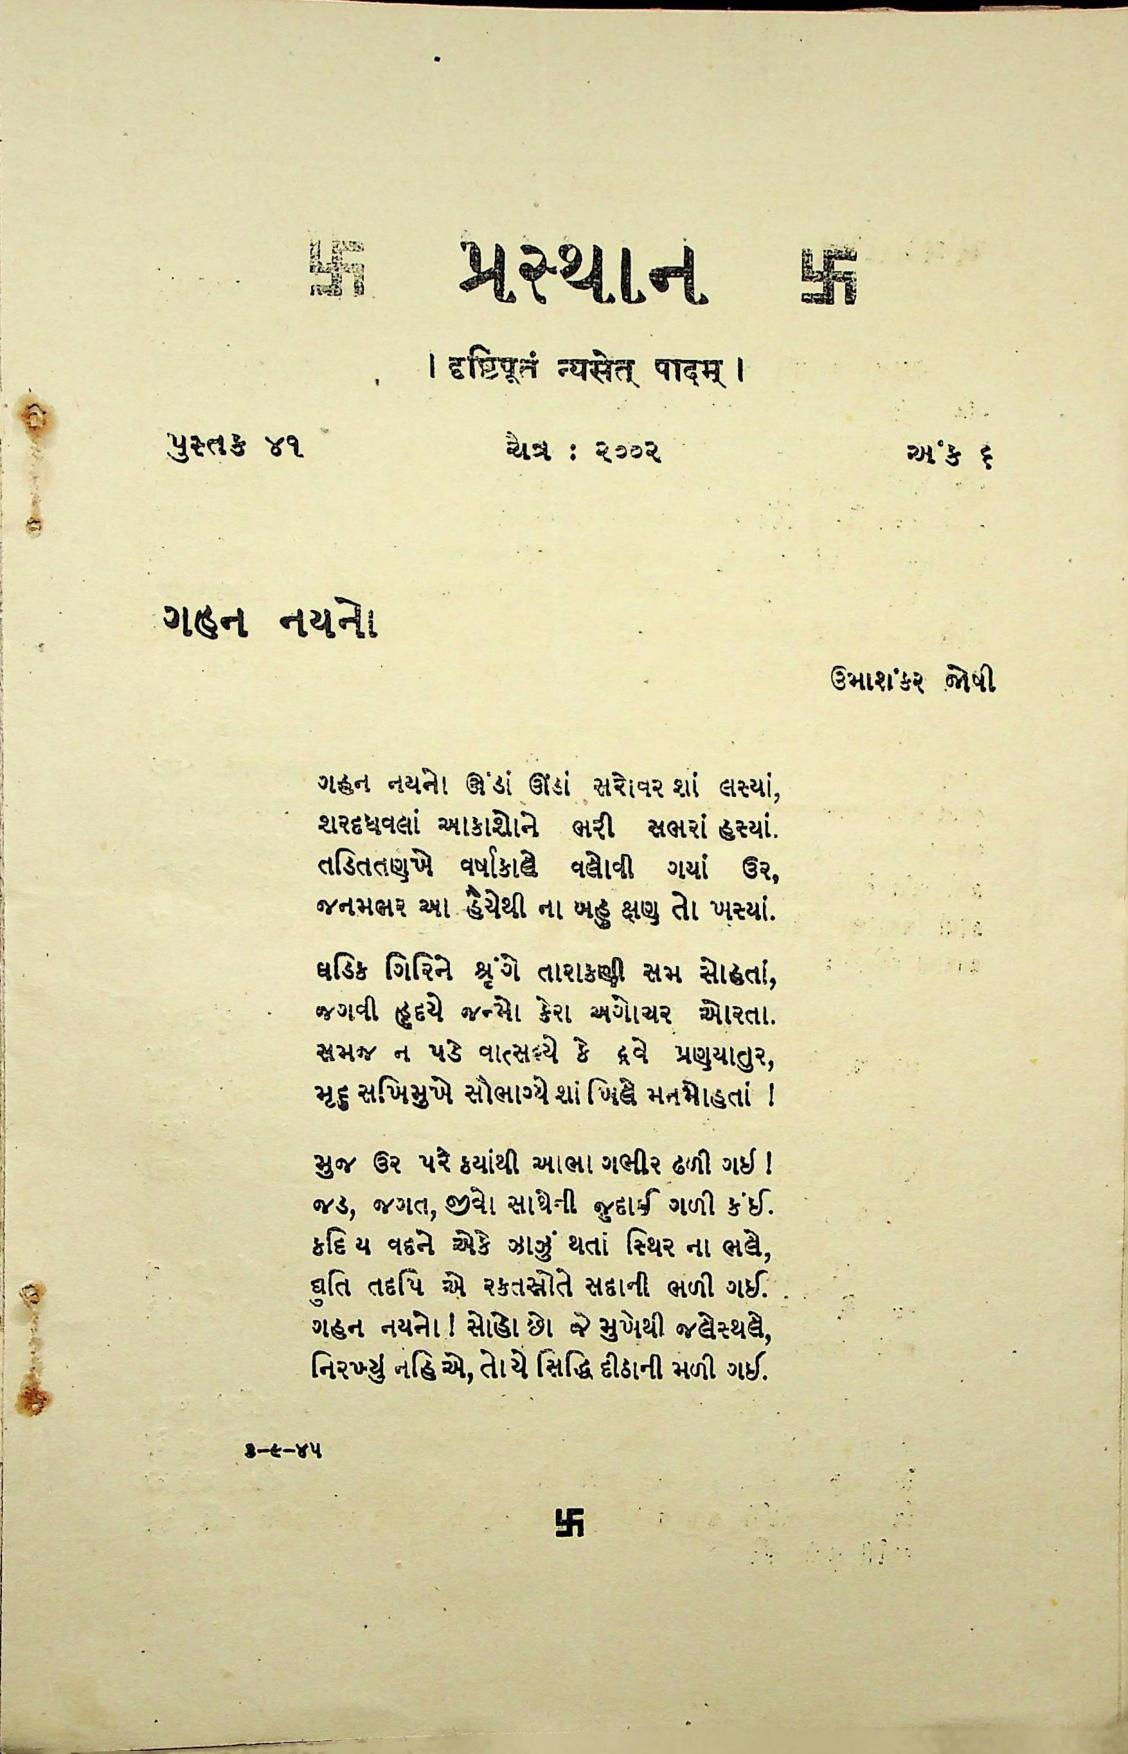 卐 પ્રસ્થાન 卐
। दृष्टिपूतं न्यसेत् पादम् ।
પુસ્તક ૪૧ ચૈત્ર : ૨૦૦૨ અંક ૬
ગહન નયનો
ઉમાશંકર જોષી
ગહન નયનો ઊંડાં ઊંડાં સરોવર શાં લસ્યાં,
શરદધવલાં આકાશોને ભરી સભરાં હસ્યાં.
તડિતતણખે વર્ષાકાલે વલોવી ગયાં ઉર,
જનમભર આ હૈયેથી ના બહુ ક્ષણ તો ખસ્યાં.
ઘડિક ગિરિને શૃંગે તારાકણી સમ સોહતાં,
જગવી હૃદયે જન્મો કેરા અગોચર ઓરતા.
સમજ ન પડે વાત્સલ્યે કે દ્રવે પ્રણયાતુર,
મૃદુ સખિમુખે સૌભાગ્યે શાં ખિલે મનમોહતાં !
મુજ ઉર પરે ક્યાંથી આભા ગભીર ઢળી ગઈ !
જડ, જગત, જીવો સાથેની જુદાઈ ગળી કંઈ.
કદિ ય વદને એકે ઝાઝું થતાં સ્થિર ના ભલે,
દ્યુતિ તદપિ એ રક્તસ્રોતે સદાની ભળી ગઈ.
ગહન નયનો ! સોહો છો જે મુખેથી જલેસ્થલે,
નિરખ્યું નહિ એ, તોયે સિદ્ધિ દીઠાની મળી ગઈ.
૩-૯-૪૫
卐